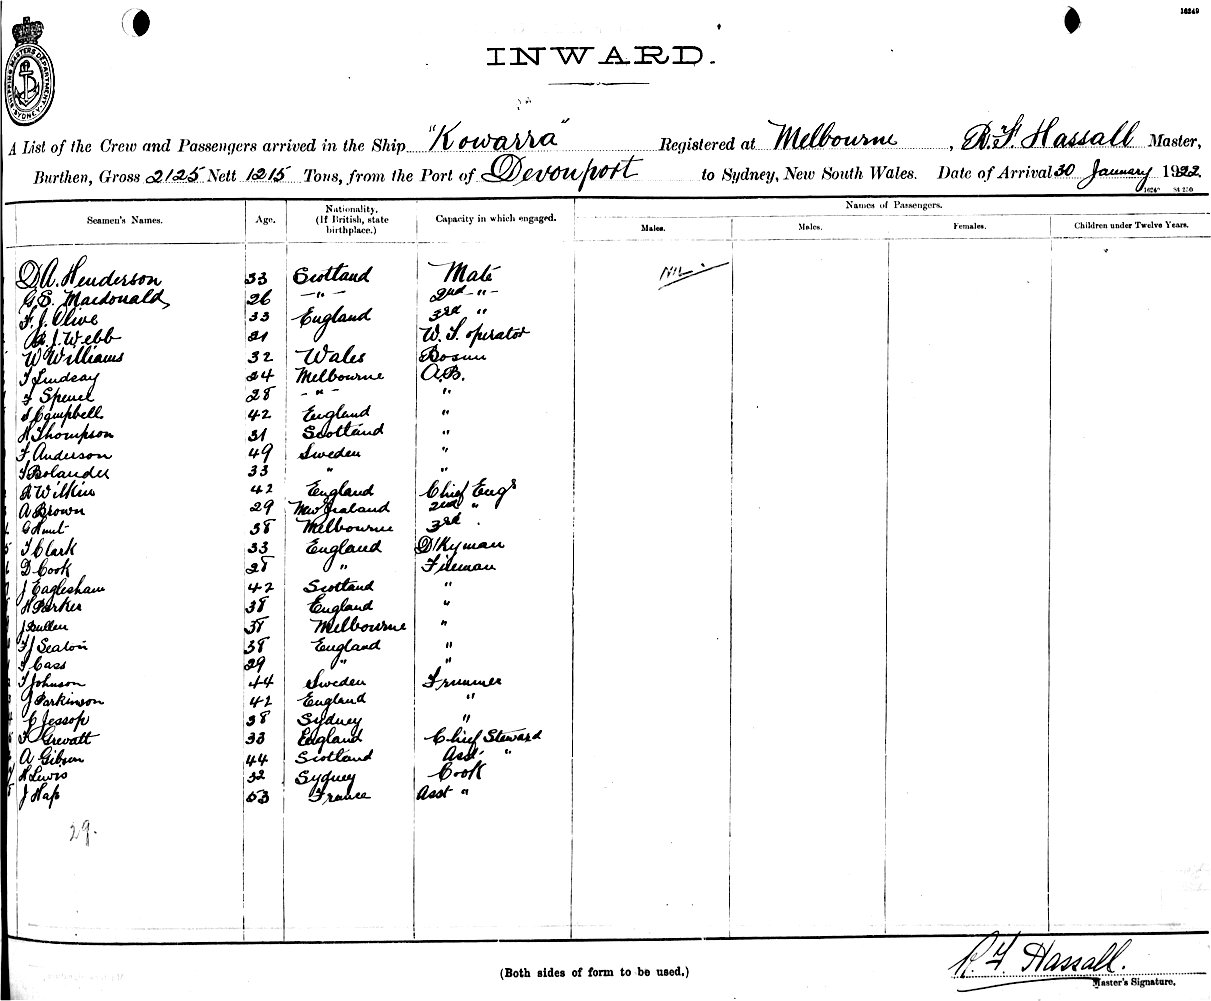 16249
INWARD.
SHIPPING MASTERS DEPARTMENT SYDNEY
A List of the Crew and Passengers arrived in the Ship "Kowarra" Registered at Melbourne, R. F. Hassall Master,
Burthen, Gross 2125 Nett 1215 Tons, from the Port of Devonport to Sydney, New South Wales. Date of Arrival 30 January 1922
Seamen's Names. Age. Nationality. (If British, state birthplace.) Capacity in which engaged. Names of Passengers.
Males. Males. Females. Children under Twelve Years.
D A. Henderson 33 Scotland Mate Nil
G. S. Macdonald 26 -"- 2nd -"-
F. J. Olive 33 England 3rd "
J. Webb 21 W. T. operator
W Williams 32 Wales Bosun
T Lindsay 24 Melbourne A.B.
28 -"- "
S Campbell 42 England "
H Thompson 31 Scotland "
F. Anderson 49 Sweden "
T Bolander 33 " "
R Wilkin 42 England Chief Engr
A Brown 29 New Zealand 2nd "
G Hunt 38 Melbourne 3rd
T Clark 33 England D'Kyman
D Cook 28 " Fireman
J Eaglesham 42 Scotland "
H Parker 38 England "
J Bullen 38 Melbourne "
F J Seaton 38 England "
T Cass 29 " "
T Johnson 44 Sweden Trimmer
J Parkinson 42 England "
C Jessop 38 Sydney "
F Grevatt 33 England Chief Steward
A Gibson 44 Scotland Asst "
H Lewis 32 Sydney Cook
J Hap 53 France Asst "
29.
(Both sides of form to be used.)
R. F. Hassall.
Master's Signature.